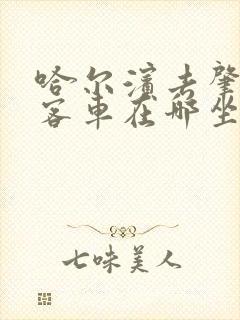 哈尔滨去肇
客车在哪坐
七味美人